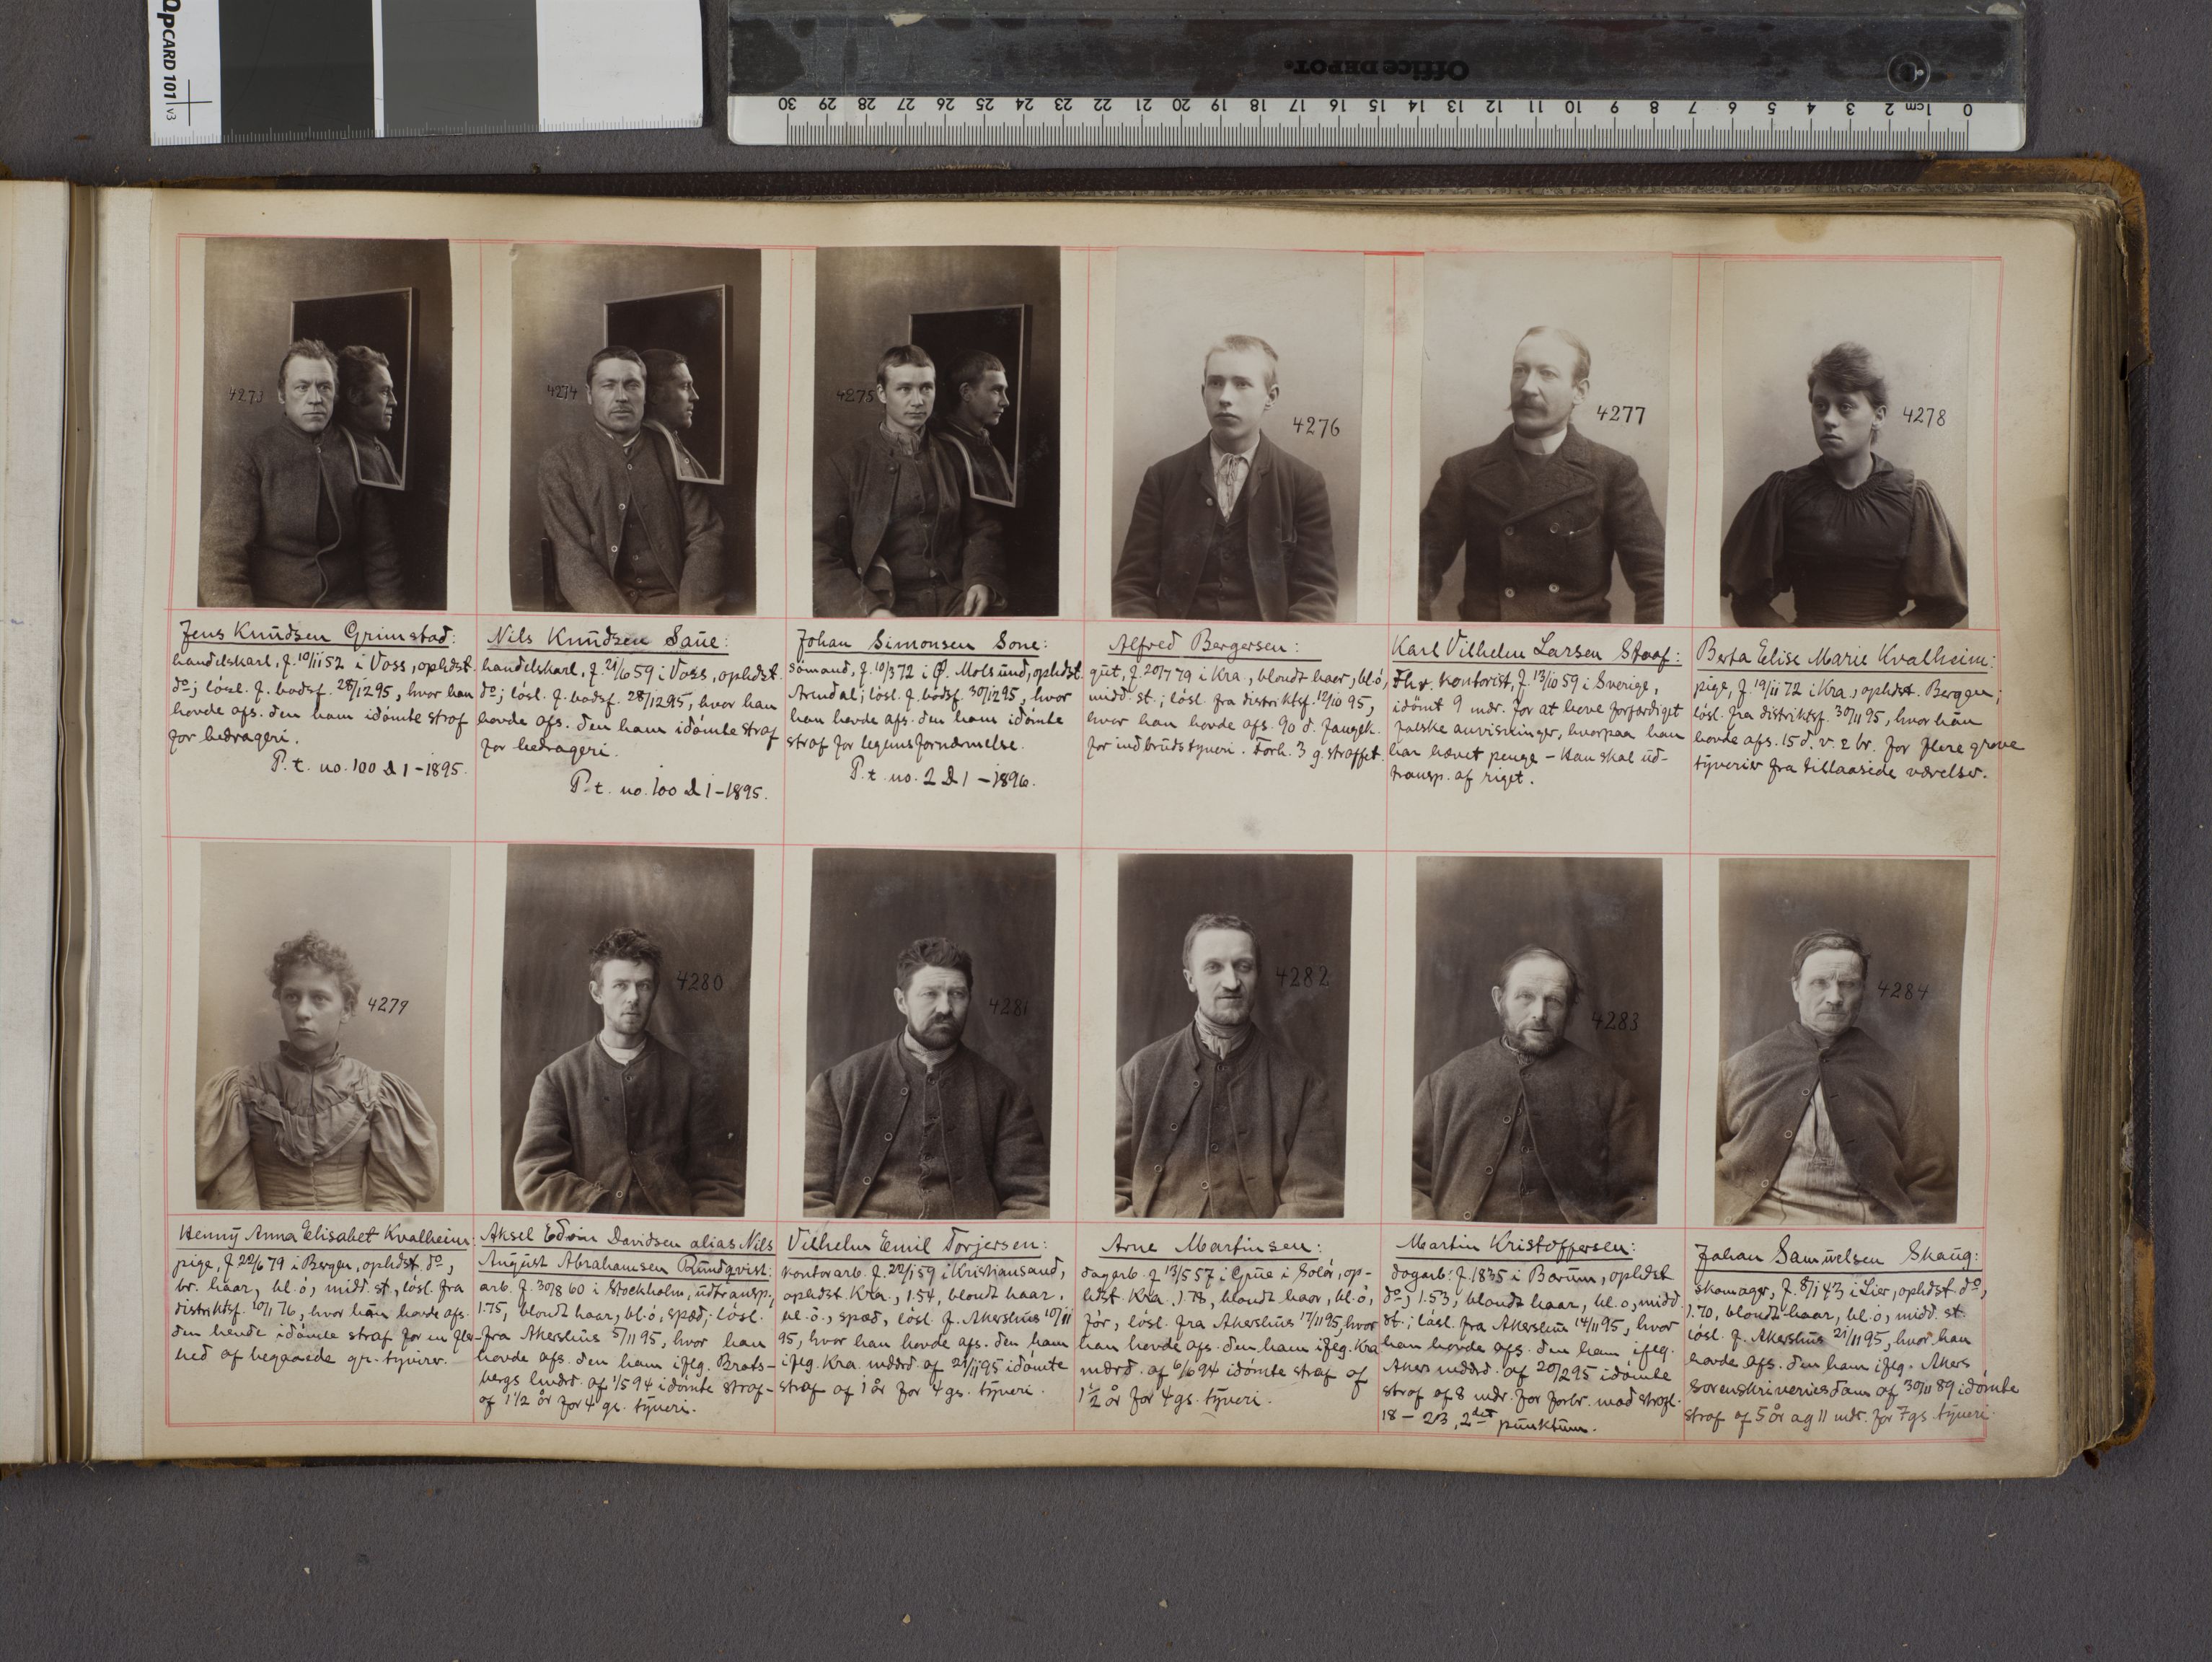 OpCARD 101 v3
Office DEPOT
30 29 28 27 26 25 24 23 22 21 20 19 18 17 16 15 14 13 12 11 10 9 8 7 6 5 4 3 2 cm 1 0
4273
4274
4275
4276
4277
4278
Jens Knudsen Grimstad:
handelskarl, f. 10/11 52 i Voss, ophdst.
do; lösl. f. bodsf. 28/12 95, hvor han
havde afs. den ham idömte straf
for bedrageri.
P.t. no. 100 d 1 - 1895.
Nils Knudsen Saue:
handelskarl, f. 21/6 59 i Voss, ophdst.
do; lösl. f. bodsf. 28/12 95, hvor han
havde afs. den ham idömte straf
for bedrageri.
P.t. no. 100 d 1 - 1895.
Johan Simonsen Sone:
sömand, f. 10/3 72 i Ø. Molsund, ophdst.
Arendal; lösl. f. bodsf. 30/12 95, hvor
han havde afs. den ham idömte
straf for legemsfornærmelse.
P.t. no. 2 d 1 - 1896.
Alfred Bergersen:
gut, f. 20/7 79 i Kra, blondt haar, bl. ö,
midd. st.; lösl. fra distriktsf. 12/10 95,
hvor han havde afs. 90 d. fængsl.
for indbrudstyveri. Forh. 3 g. straffet.
Karl Vilhelm Larsen Staaf:
Fhv. kontorist, f. 13/10 59 i Sverige,
idömt 9 mdr. for at have forfærdiget
falske anvisninger, hvorpaa han
har hævet penge - Han skal ud-
transp. af riget.
Berta Elise Marie Kvalheim:
pige, f. 19/11 72 i Kra., ophdst. Bergen;
lösl. fra distriktsf. 30/11 95, hvor hun
havde afs. 15 d. v. & br. for flere grove
tyverier fra tillaasede værelser.
4279
4280
4281
4282
4283
4284
Henny Anna Elisabet Kvalheim:
pige, f. 22/6 79 i Bergen, ophdst. do,
br. haar, bl. ö, midd. st, lösl. fra
distriktsf. 10/1 96, hvor hun havde afs.
den hende idömte straf for en fler-
hed af begaaede gr. tyvier.
Aksel Edvin Davidsen alias Nils
August Abrahamsen Rundqvist:
arb. f. 30/8 60 i Stockholm, udtransp.,
1.75, blondt haar, bl. ö, spæd; lösl.
fra Akershus 5/11 95, hvor han
havde afs. den ham iflg. Brats-
bergs lmdrd. af 1/5 94 idömte straf
af 1 1/2 år for 4 gs. tyveri.
Vilhelm Emil Torjersen:
kontorarb. f. 22/1 59 i Kristiansand,
ophdst. Kra., 1.54, blondt haar.
bl. ö., spæd, lösl. f. Akershus 10/11
95, hvor han havde afs. den ham
iflg. Kra. mddrd. af 21/11 95 idömte
straf af 1 år for 4 gs. tyveri.
Arne Martinsen:
dagarb. f. 13/5 57 i Grue i Solör, op-
hdst. Kra., 1.78, blondt haar, bl. ö,
för, lösl. fra Akershus 17/11 95, hvor
han havde afs. den ham iflg. Kra.
mdrd. af 6/6 94 idömte straf af
1 1/2 år for 4 gs. tyveri.
Martin Kristoffersen:
dagarb. f. 1835 i Bærum, ophdst
do; 1.53, blondt haar, bl. ö, midd.
st.; lösl. fra Akershus 14/11 95, hvor
han havde afs. den ham iflg.
Akers mddrd. af 20/2 95 idömte
straf af 8 mdr. for forbr. mod strfl.
18 - 23, 2det punktum.
Johan Samuelsen Skaug:
skomager, f. 8/1 43 i Lier, ophdst. do,
1.70, blondt haar, bl. ö, midd. st.
lösl. f. Akershus 21/11 95, hvor han
havde afs. den ham iflg. Akers
sorenskriveriesdom af 30/11 89 idömte
straf af 5 år og 11 mdr. for 7 gs tyveri.